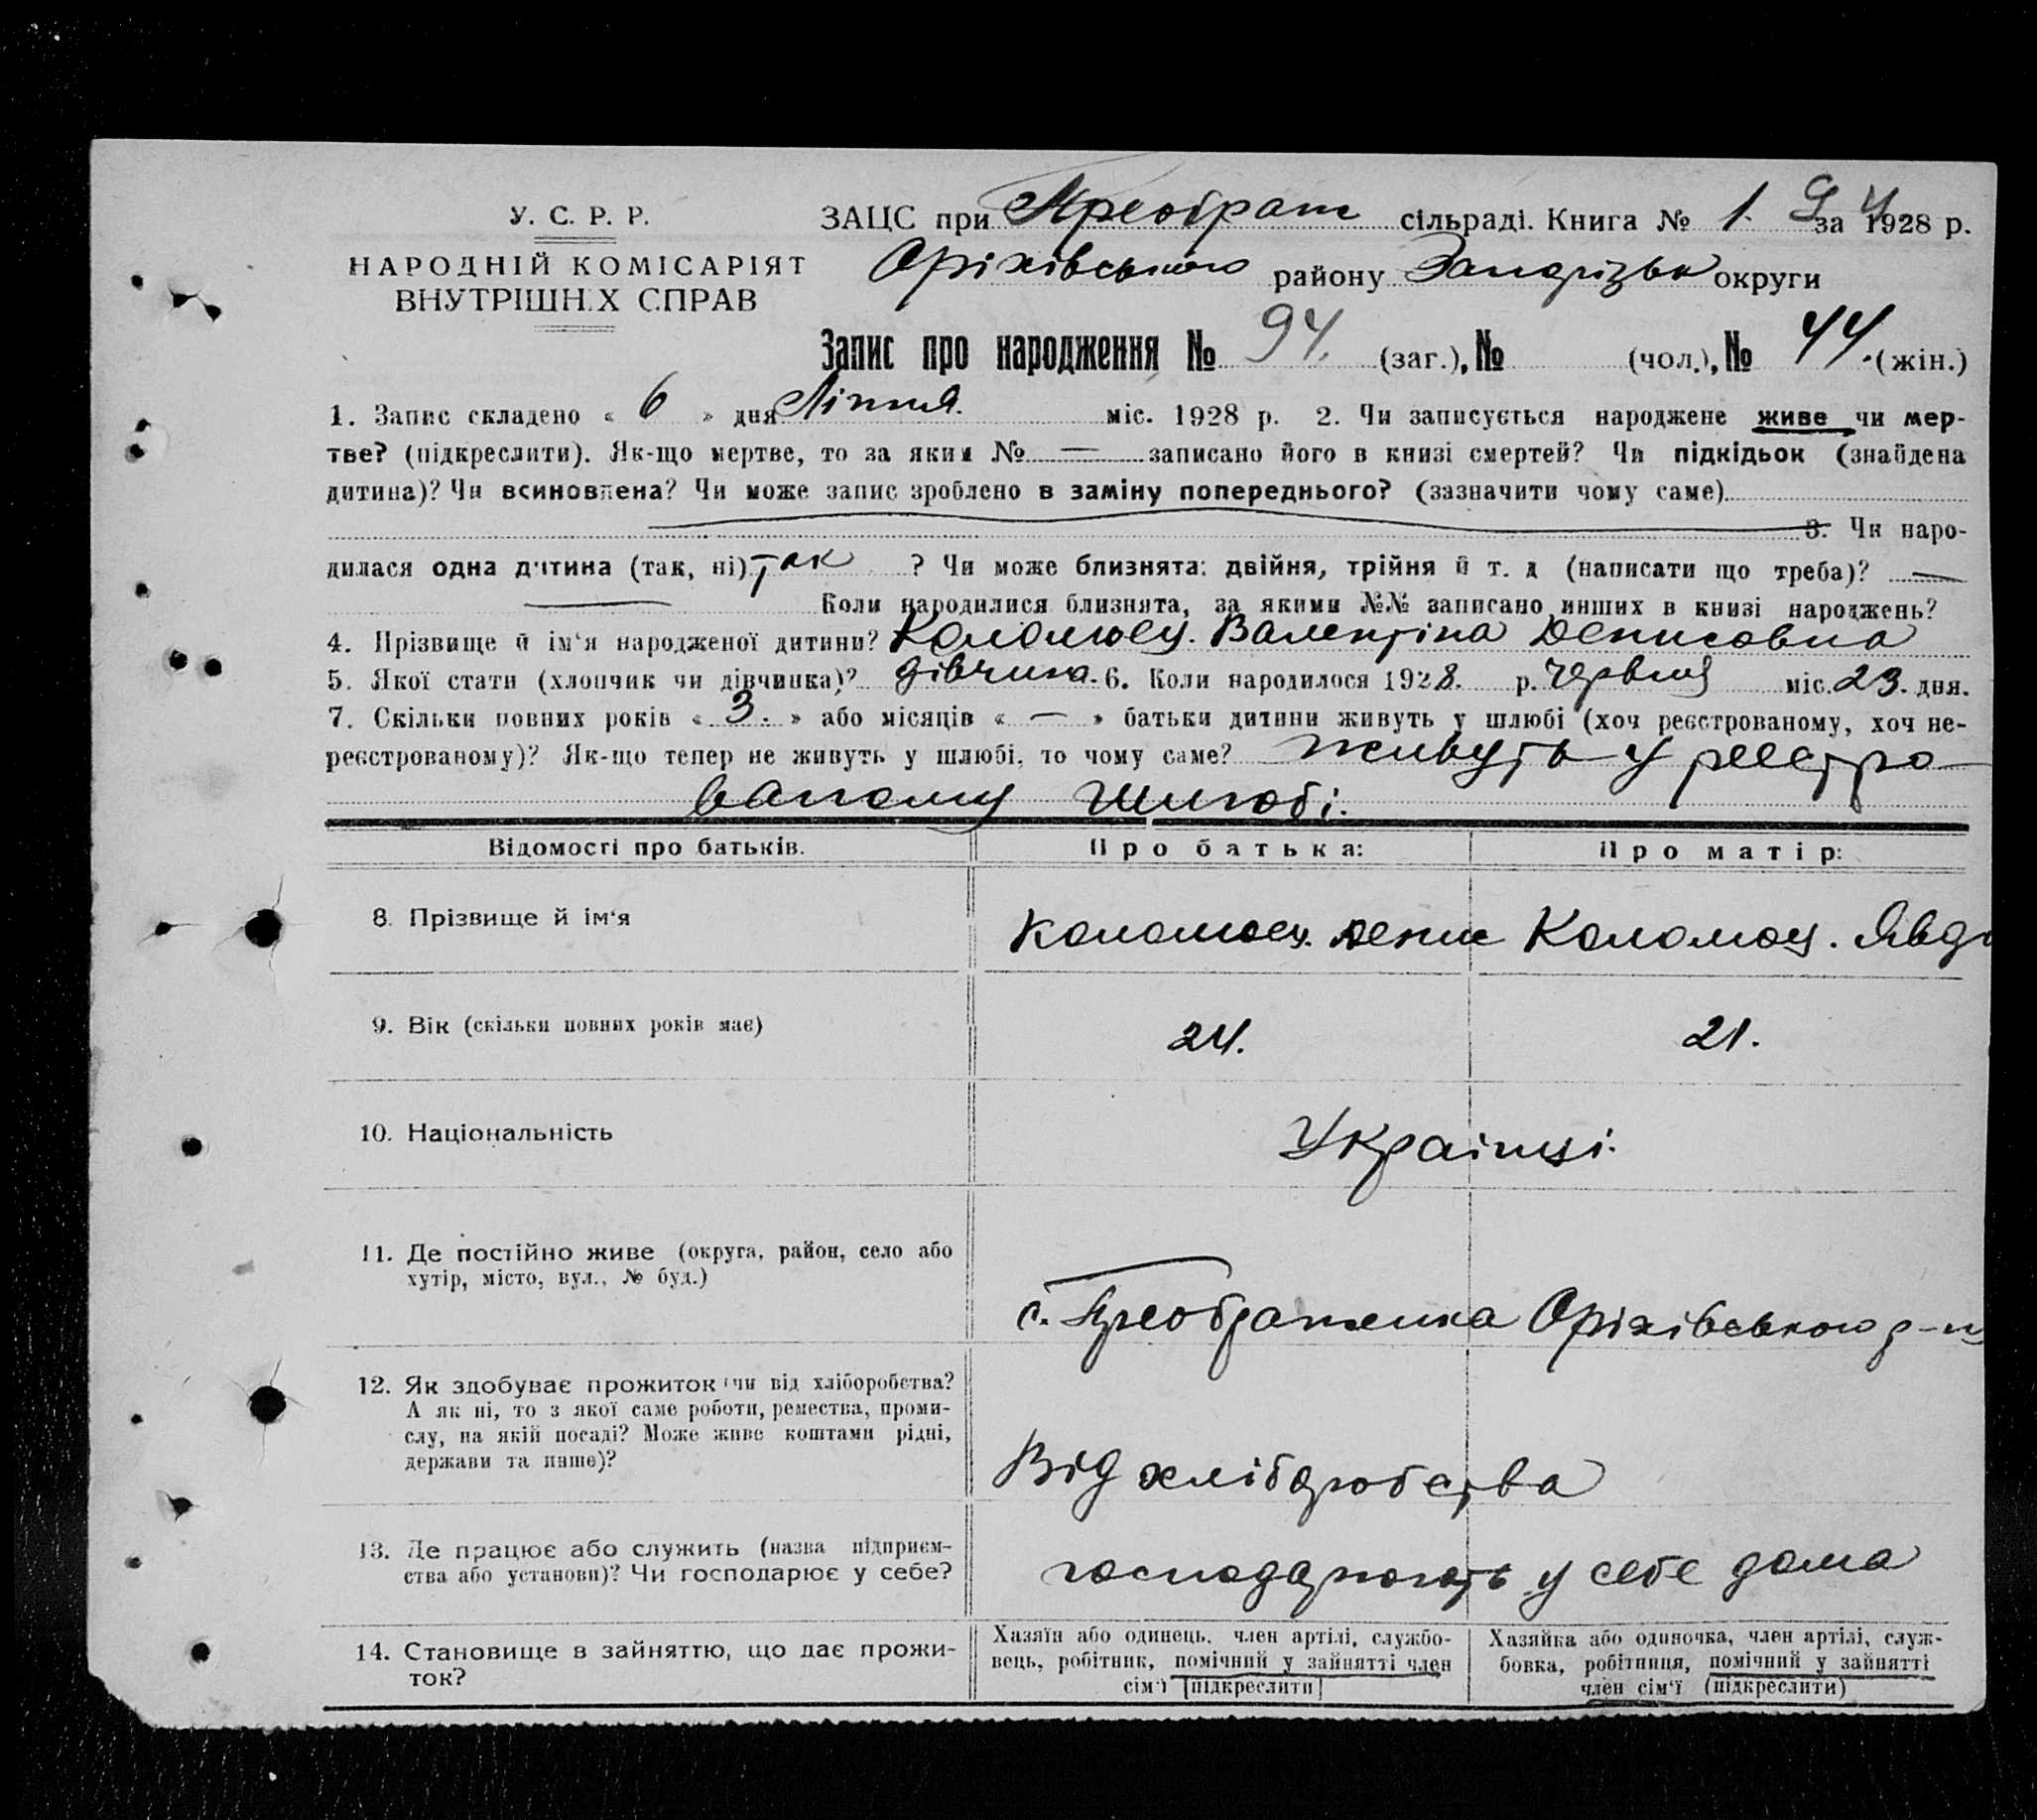 У. С. Р. Р.
НАРОДНІЙ КОМІСАРІЯТ
ВНУТРІШНІХ СПРАВ
ЗАЦС при Преображ сільраді. Книга № 1. за 1928 р.
Оріхівського району Запорізьк округи
Запис про народження № 94. (заг.), № (чол.), № 44. (жін.)
1. Запис складено « 6 » дня Ліпня. міс. 1928 р. 2. Чи записується народжене живе чи мер-
тве? (підкреслити). Як-що мертве, то за яким № — записано його в книзі смертей? Чи підкідьок (знайдена
дитина)? Чи всиновлена? Чи може запис зроблено в заміну попереднього? (зазначити чому саме)
3. Чи наро-
дилася одна дитина (так, ні) так ? Чи може близнята: двійня, трійня й т. д (написати що треба)? —
— Коли народилися близнята, за якими №№ записано инших в книзі народжень?
4. Прізвище й ім'я народженої дитини? Коломоец. Валентіна Денисовна
5. Якої стати (хлопчик чи дівчинка)? дівчина. 6. Коли народилося 1928. р. червня міс. 23. дня.
7. Скільки повних років « 3. » або місяців « — » батьки дитини живуть у шлюбі (хоч реєстрованому, хоч не-
реєстрованому)? Як-що тепер не живуть у шлюбі, то чому саме? живуть у реестро
ваному шлюбі.
Відомості про батьків. Про батька: Про матір:
8. Прізвище й ім'я Коломоец. Денис Коломоец. Явдо
9. Вік (скільки повних років має) 24. 21.
10. Національність Украінці.
11. Де постійно живе (округа, район, село або
хутір, місто, вул., № буд.)
с. Преображенка Оріхівського р-н
12. Як здобуває прожиток (чи від хліборобства?
А як ні, то з якої саме роботи, ремества, проми-
слу, на якій посаді? Може живе коштами рідні,
держави та инше)?
Від хліборобства
13. Де працює або служить (назва підприєм-
ства або установи)? Чи господарює у себе?
господарюють у себе дома
14. Становище в зайняттю, що дає прожи-
ток?
Хазяїн або одинець, член артілі, службо-
вець, робітник, помічний у зайнятті член
сім'ї (підкреслити)
Хазяйка або одиночка, член артілі, служ-
бовка, робітниця, помічний у зайнятті
член сім'ї (підкреслити)